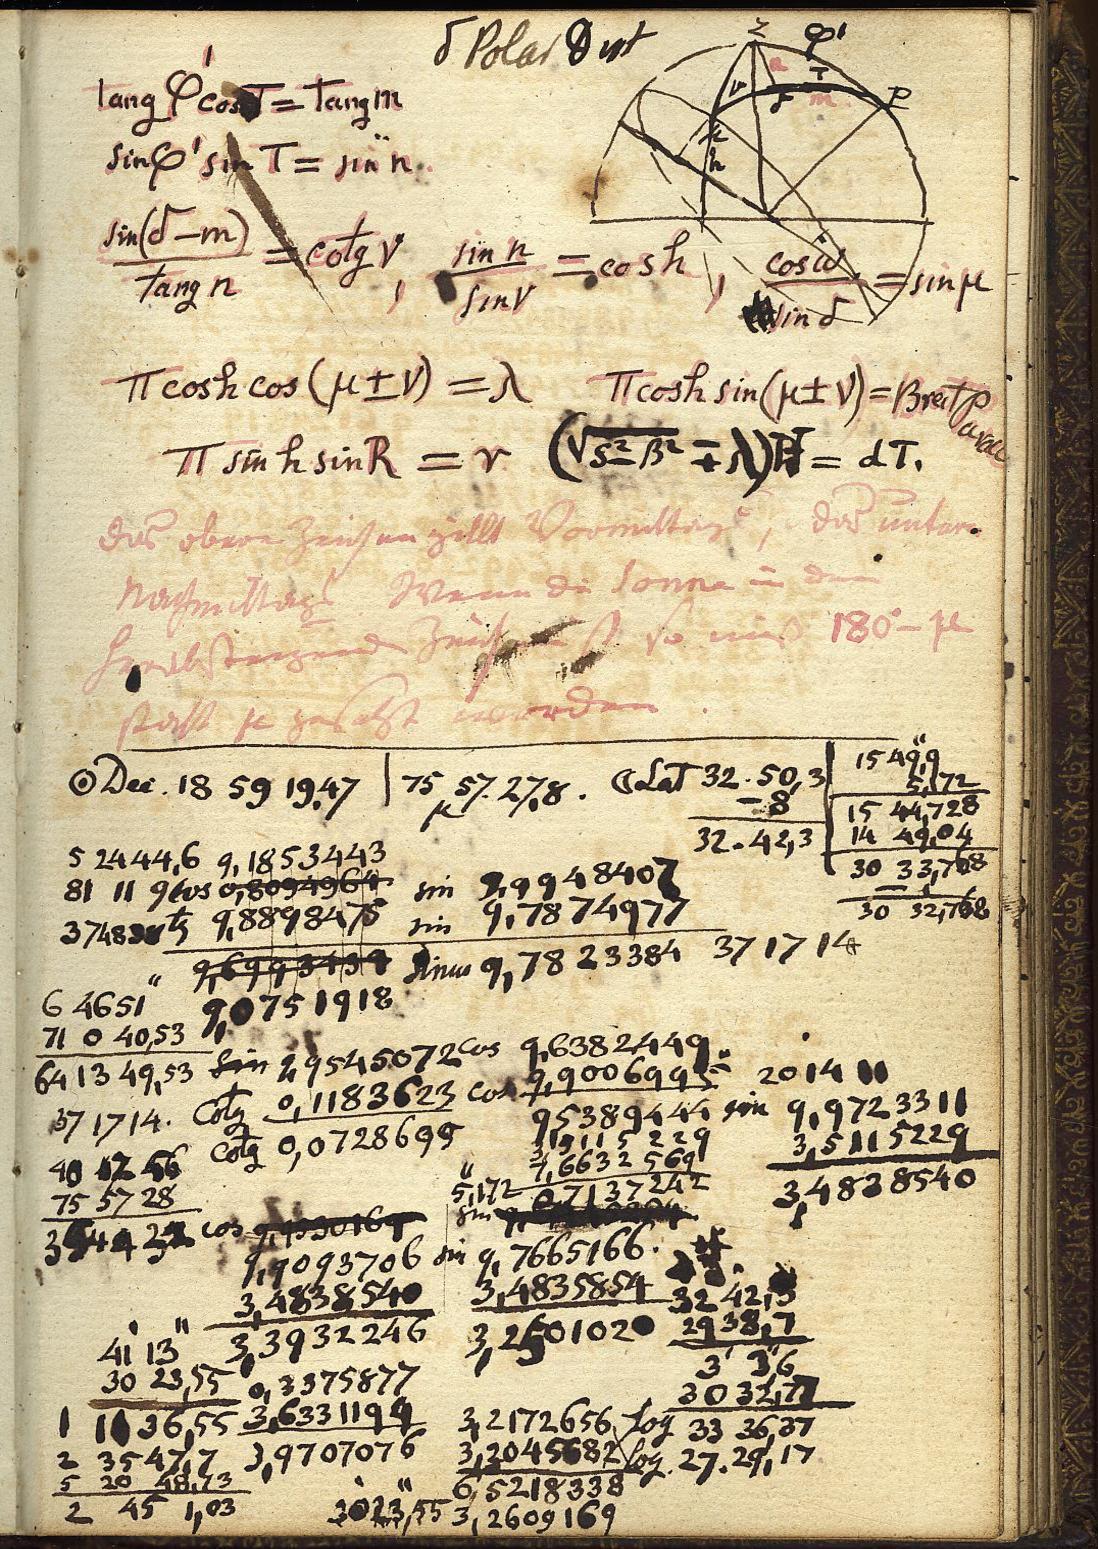 δ Polar Dist
Z φ'
a T
ν δ m P
μ
h
tang φ' cos T = tang m
sin φ' sin T = sin n.
sin(δ-m) / tang n = cotg ν, sin n / sin ν = cos h, cos ω / sin δ = sin μ
π cos h cos (μ ± ν) = λ π cos h sin (μ ± ν) = Breit Parall
π sin h sin R = r (√s²-β² ∓ λ) = dT.
das obere Zeichen gillt Vormittags, das untere
Nachmittags. Wenn die Sonne in den
herabsteigenden Zeichen ist so muß 180° - μ
statt μ gesetzt werden.
☉ Dec. 18 59 19,47 | 75 57. 27,8. ☾ Lat 32. 50,3
μ - 8
32. 42,3
15 49,9
5,172
15 44,728
14 49,04
30 33,768
- 1
30 32,768
5 24 44,6 9,1853443
81 11 9 cos 0,8094964 sin 9,9948407
37 48 9,8898475 sin 9,7874977
9,6993434 sinus 9,7823384 37 17 14
6 46 51" 9,0751918
71 0 40,53
64 13 49,53 sin 9,9545072 cos 9,6382449
37 17 14. Cotg 0,1183623 cos 9,9006995 20 14 11
Cotg 0,0728695 9 5389444 sin 9,9723311
3,5115229 3,5115229
40 12 56 1,6632569 3,4838540
75 57 28 5,172 0,7137242
35 44 32 cos sin
9,9093706 sin 9,7665166.
3,4838540 3,4835854 32 42,3
3,3932246 3,2501020 29 38,7
41' 13" 3' 3,6
30 23,55 0,3375877 30 32,77
1 11 36,55 3,6331199 3,2172656 log 33 36,37
2 35 47,7 3,9707076 3,3045682 log. 27. 29,17
5 20 48,73 6,5218338
2 45 1,03 30 23,55 3,2609169